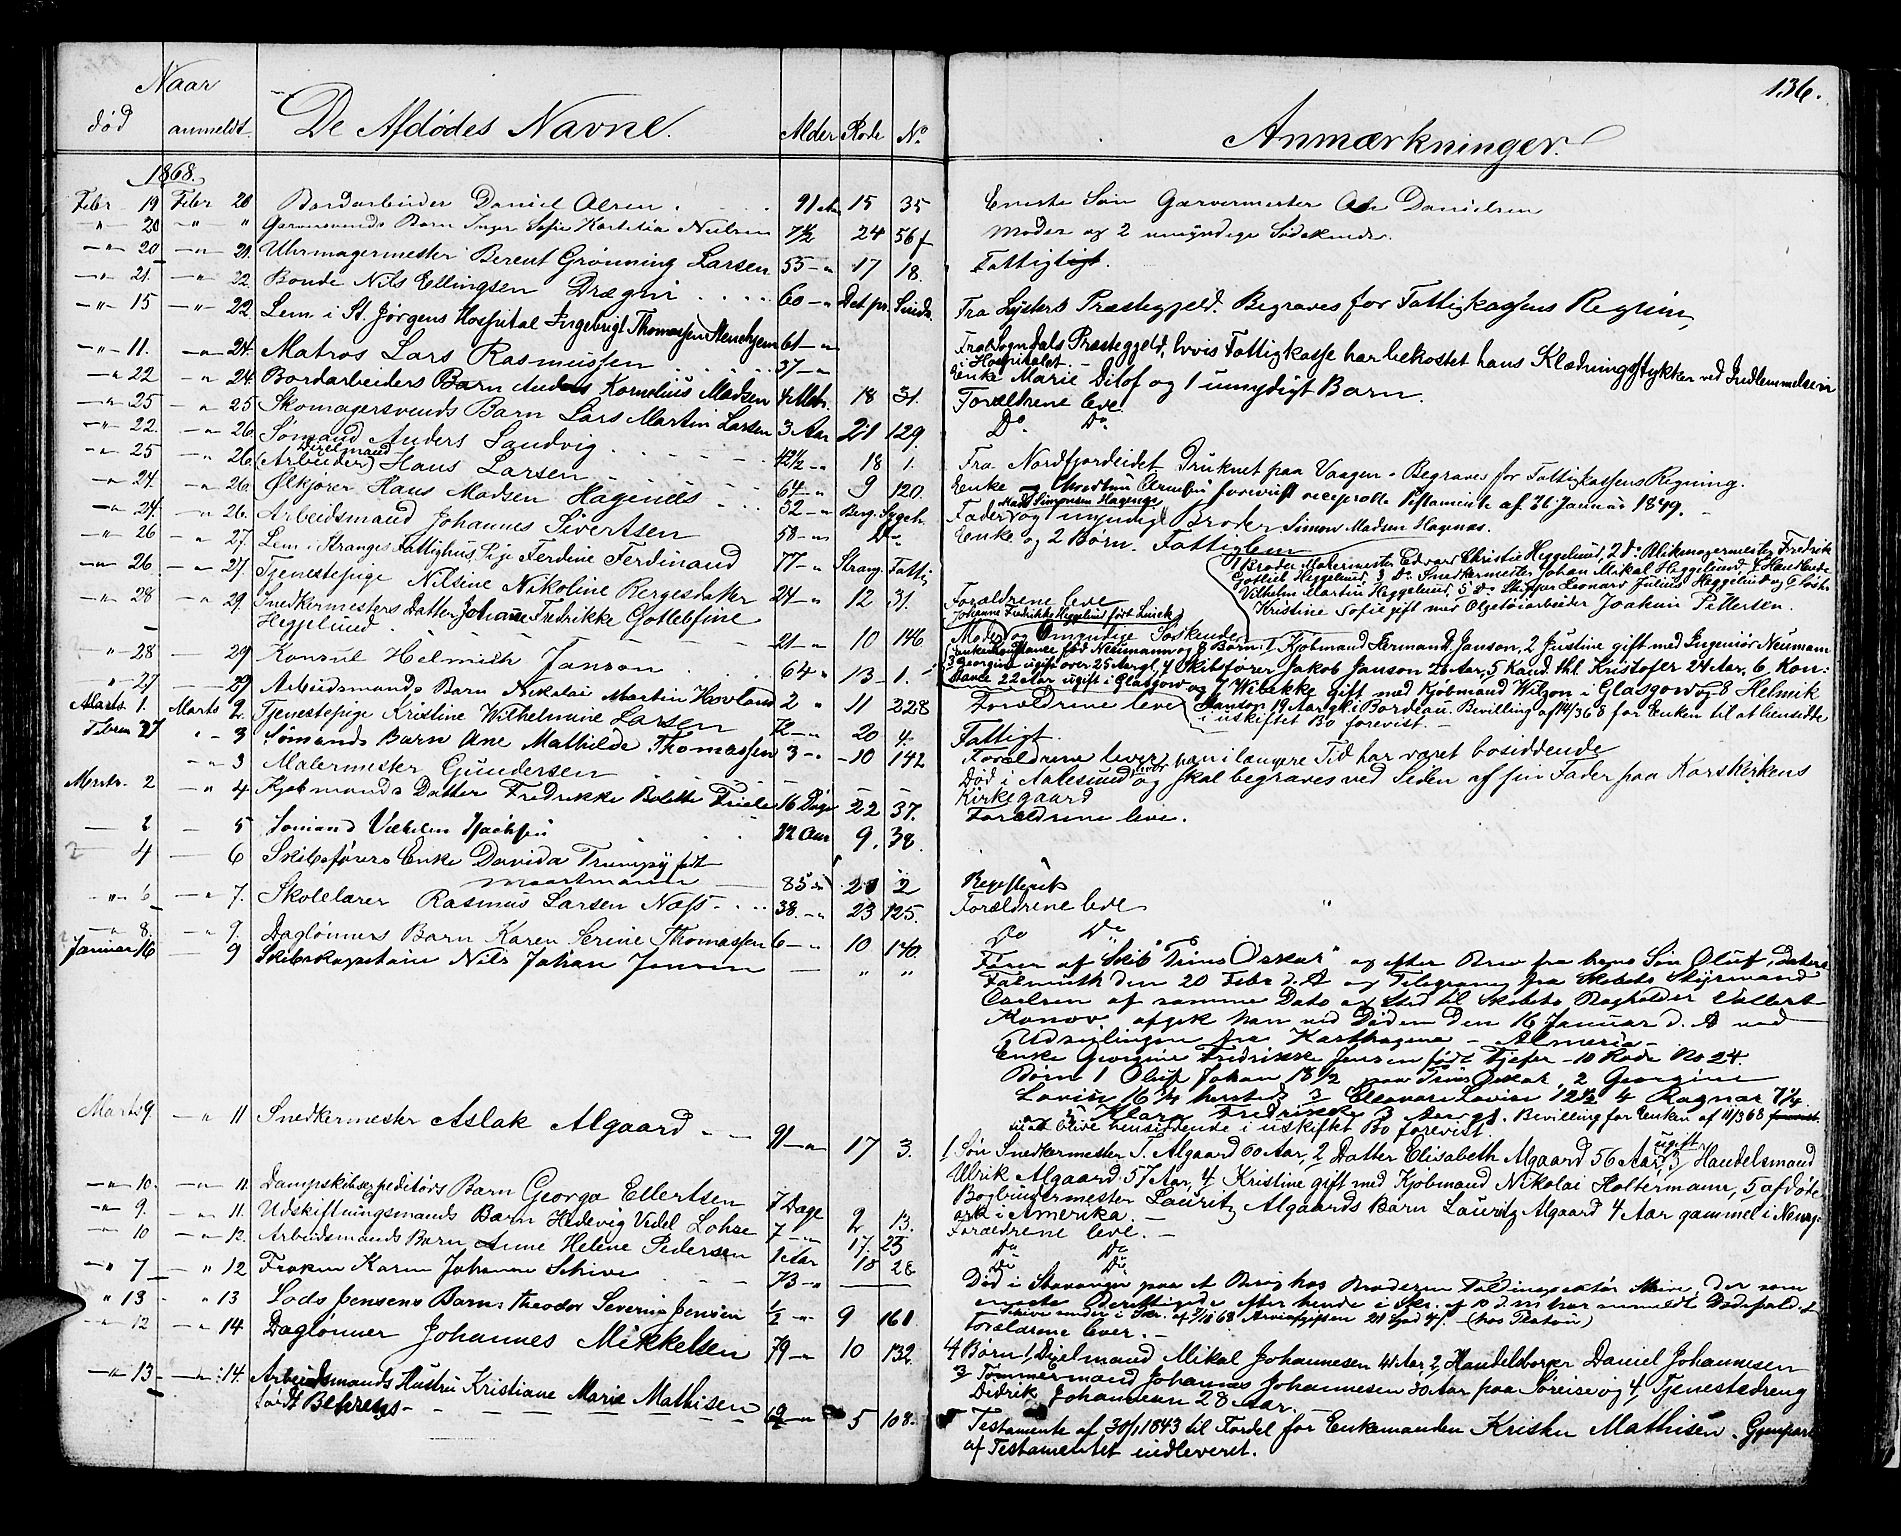 136.
Naar
død anmeldt De Afdødes Navne. Alder Rode No
Anmærkninger.
1868.
Febr 19 Febr 20 Bordarbeider Daniel Olsen 91 Aar 15 35
Eneste Søn Garvermester Ole Danielsen
" 20 " " Garversvends Barn Inger Sofie Nielsen 7½ 24 56f
Moder og 2 umyndige Sødskende.
" 20 " 21. Uhrmagermester Berent Grønning Larsen 55 " 17 18.
Fattigt.
" 21. " 22. Bonde Nils Ellingsen Drægni 60 " Det pr. Sindss.
Fra Lysters Præstegjeld. Begraves for Fattigkassens Regning
" 15 " 22. Lem i St. Jørgens Hospital Ingebrigt Thomassen 61
Fra Sogndals Præstegjeld, hvis Fattigkasse har bekostet hans Klædningsstykker ved Indlemmelsen i
Hospitalet.
" 11. " 24. Matros Lars Rasmussen 37 "
Enke Marie Ditlof og 1 umyndigt Barn.
" 22 " 24. Bordarbeiders Barn Anders Kornelius Madsen 4 Mdr. 18 31.
Forældrene leve
" 25 " 25 Skomagersvends Barn Lars Martin Larsen 3 Aar 21 129.
Do Do
" 22. " 26. Sømand Anders Sandvig 42½ " 18 1.
Fra Nordfjordeidet Druknet paa Vaagen. Begraves for Fattigkassens Regning.
" 25 " 26. (Arbeider) Hans Larsen 64 " 9 120.
Enke forevist reciprokke Testamente af 26 Januar 1849.
" 24. " 26. Ølkjører Hans Madsen Hagenæs 32 " Berg. Sygeh.
Fader Mads Simonsen Hagenæs og 1 umyndig Broder Simon Madsen Hagenæs.
" 24. " 26. Arbeidsmand Johannes Sivertsen 58 " Do
Enke og 2 Børn. Fattigt
" 26 " 27. Lem i Stranges Fattighus, Pige Ferdine Ferdinand 77 " Strang. Fattig
" 26. " 27. Tjenestepige Nilsine Nikoline Bergesdatter 24 " 12 31.
Forældrene leve
1 Broder Malermester Edvard Christie Heggelund, 2 do Blikmagermester Fredrik
Gotlieb Heggelund, 3 Do Snedkermester Johan Mikal Heggelund, 4 Handlende
Vilhelm Martin Heggelund, 5 Do Skipper Leonard Julius Heggelund og 6 Søster
Kristine Sofie gift med Olgetøiarbeider Joakim Pettersen.
" 28 " 29. Snedkermesters Datter Johanne Fredrikke Gotlebfine
Heggelund 21 " 10 146
Moder og Umyndige Søskende
" 28 29 Konsul Helmich Janson 64 " 13 1.
Enke født Neumann og 8 Børn: 1 Kjøbmand Hermand Janson, 2 Justine gift med Ingeniør Neumann
3 Georgine ugift over 25 Aar gl, 4 Skibsfører Jakob Janson 26 Aar, 5 Kand. thl. Kristofer 24 Aar, 6 Kon-
stance 22 Aar ugift i Glasgow og 7 Wibekke gift med Kjøbmand Wilson i Glasgow og 8 Helmik
Janson 19 Aar gl. i Bordeau. Bevilling af 14/3 68 for Enken til at hensidde
i uskiftet Bo forevist.
" 27 29 Arbeidsmands Barn Nikolai Martin Hovland 2 " 11 228
Forældrene leve
Marts 1. Marts 2. Tjenestepige Kristine Wilhelmine Larsen 72 " 20 4.
Fattigt.
Febru 27 " 3 Sømands Barn Ane Mathilde Thomassen 3 " 10 142
Forældrene lever
" 3 Malermester Gundersen
Død i Aalesund hvor han i længere Tid har været bosiddende
og skal begraves ved Siden af sin Fader paa Korskirkens
Kirkegaard
Marts 2 " 4 Kjøbmands Datter Fredrikke Bolette Friele 16 Dage 22 37.
Forældrene leve.
2 5 Sømand Vilhelm 22 Aar 9. 38.
4 6 Skibsførers Enke Davida Trumpy født
Maartmann 85 " 21 2
" 6 " 7. Skolelærer Rasmus Larsen Næss 38. " 23 125.
Forældrene leve
" 8. " 9. Daglønners Barn Karen Serine Thomassen 6 " 10 140.
Do Do
Januar 16 9 Skibskaptain Nils Johan Jensen " "
Fører af Skib "Prins Oskar" og efter Brev fra hans Søn Oluf, dateret
Falmouth den 20 Febr d.A og Telegram fra Skibets Styrmand
Carlsen af samme Dato og Sted til Skibets Rhegholder
Konow, afgik han ved Døden den 16 Januar d. A ved
Udseilingen fra Karthagena - Almeria -
Enke Georgine Fredrikke Jensen født Tjefer - 10 Rode No 24.
Børn 1 Oluf Johan 18½ paa Prins Oskar, 2 Georgine
Lovise 16¾ hersteds 3 Eleonore Lovise 12½ 4 Ragnar 7¼
og 5 Klara Fredrikke 3 Aar gl. Bevilling for Enken af 11/3 68
at blive hensiddende i uskiftet Bo forevist
Marts 9 " 11 Snedkermester Aslak Algaard 91 " 17 3.
1 Søn Snedkermester T. Algaard 60 Aar, 2 Datter Elisabeth Algaard 56 Aar ugift, 3 Handelsmand
Ulrik Algaard 57 Aar, 4 Kristine gift med Kjøbmand Nikolai Holtermann, 5 afdøde
Bogbindermester Lauritz Algaards Børn Lauritz Algaard 4 Aar gammel i Newy-
ork i Amerika.
" 10. " 11. Dampskibsexpeditørs Barn George Ellertsen 7 Dage 2 13.
Forældrene leve.
" 9. " 11. Udskiftningsmands Barn Hedevig Vedel Lohse 7 " 17. 23
Do Do
10 " 12. Arbeidsmands Barn Anne Helene Pedersen 1 Aar 18 28
Do Do
" 7 " 12 Frøken Karen Johanne Schive 73 "
Død i Stavanger paa et Besøg hos Broderen Toldinspektør Skive, der som
eneste Berettigede efter hende i Skr. af 10 d.m har anmeldt Dødsfaldet
" 13 " 13 Lods Jensens Barn Theodor Severin Jensen ½ " 9 161.
Forældrene lever.
" 12 " 14 Daglønner Johannes Mikkelsen 79 " 10 132
4 Børn, 1, Dixelmand Mikal Johannesen 41 Aar 2, Handelsborger Daniel Johannesen
3 Tømmermand Johannes Johannesen 30 Aar paa Søreise og 4, Tjenestedreng
Didrik Johannesen 28 Aar.
" 13 " 14. Arbeidsmands Hustru Kristiane Marie Mathisen
født Behrens 5 108.
Testamente af 30/1 1843 til Fordel for Enkemanden Krister Mathisen. Gjenpart
af Testamentet indleveret.